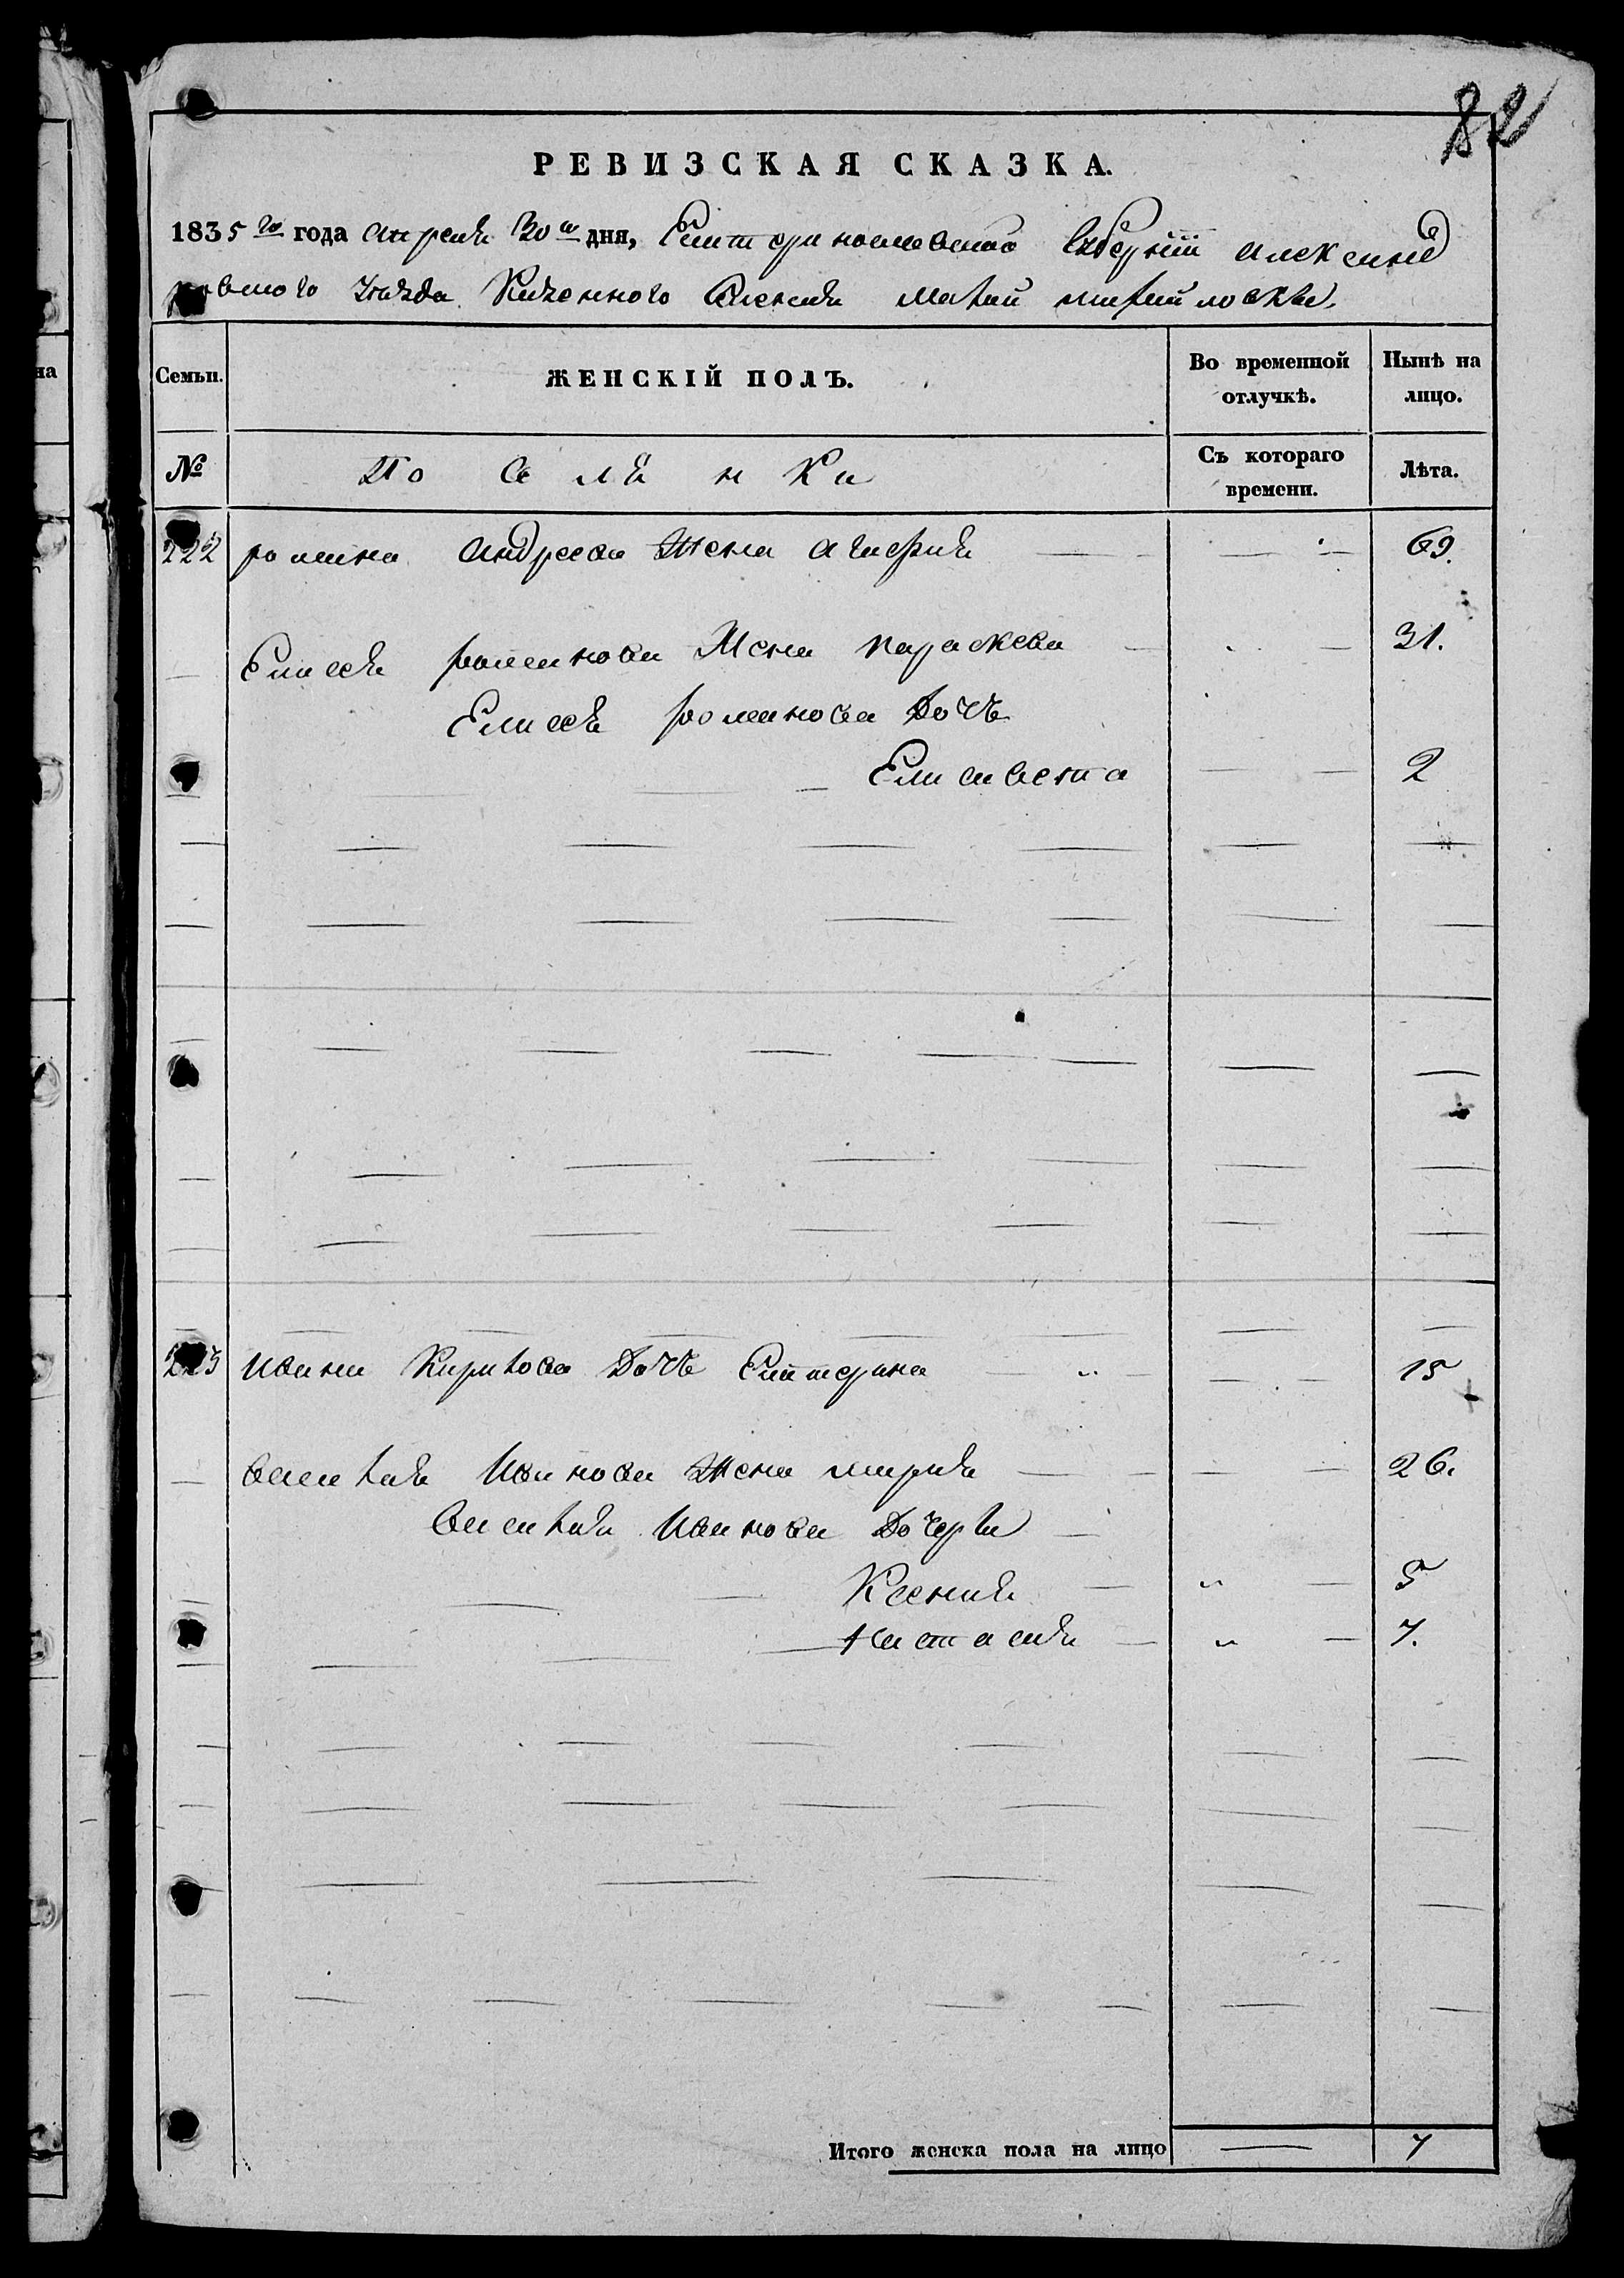 82
РЕВИЗСКАЯ СКАЗКА.
1835 го года апреля 30 го дня, Екатеринославской Губернии александ
ровского уезда Казенного Селения Михайловки
на
Семьи.
ЖЕНСКІЙ ПОЛЪ.
Во временной отлучкѣ.
Нынѣ на лицо.
№
Поселянки
Съ котораго времени.
Лѣта.
222 романа Андреева жена агафия 69.
Елисея романова Жена параскева 31.
Елисея романова дочь
Елисавета 2
223 Ивана Кирикова дочь Екатерина 15
Василия Иванова жена мария 26.
Василия Иванова дочери
Ксения 5
Настасия 7.
Итого женска пола на лицо 7